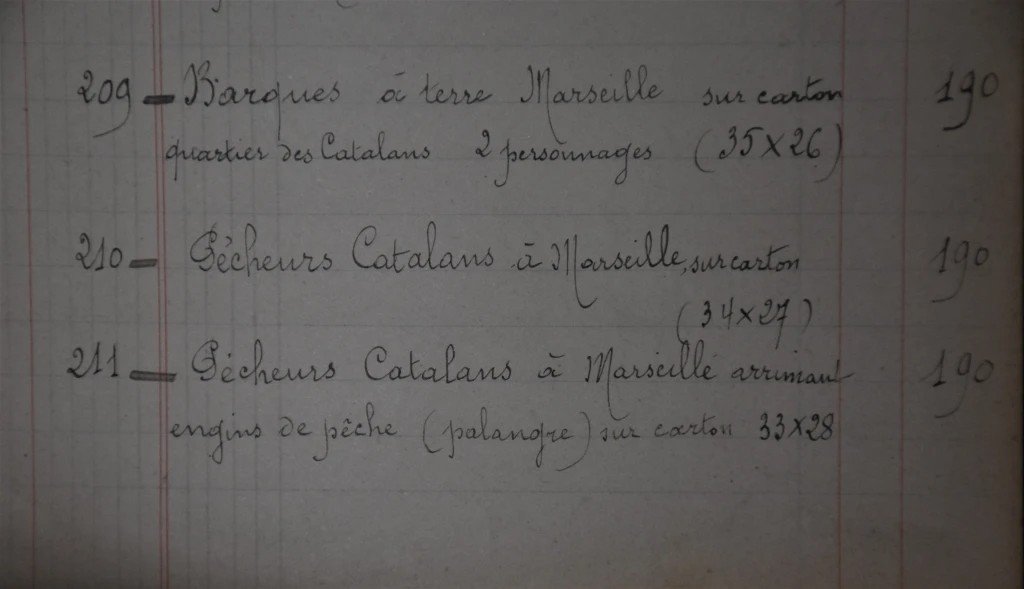 209 - Barques à terre Marseille sur carton 190
quartier des Catalans 2 personnages (35x26)
210 - Pêcheurs Catalans à Marseille, sur carton 190
(34x27)
211 - Pêcheurs Catalans à Marseille arrimant 190
engins de pêche (palangre) sur carton 33x28